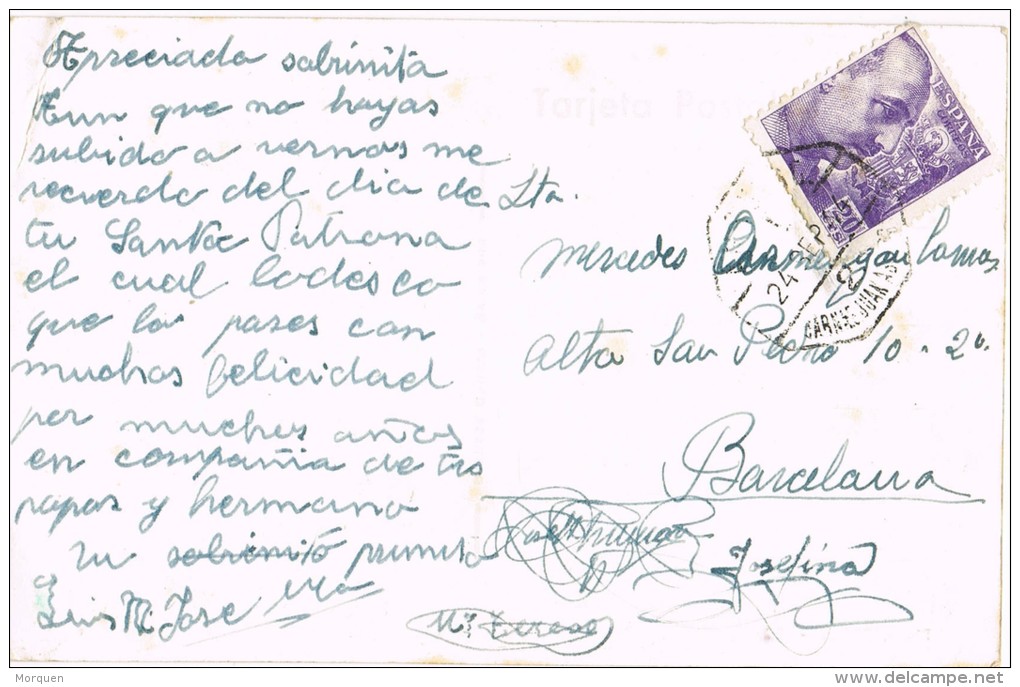 Apreciada sobrinita
Aun que no hayas
subido a vernos me
recuerdo del dia de
tu Santa Patrona
el cual lodeseo
que los pases con
muchas felicidad
por muchos años
en compañia de tus
papas y hermano
tu sobrinito primito
Luis Mª Jose
Tarjeta Postal
ESPAÑA
CORREOS
20
24 SEP
CARNET JUAN
Sta.
Mercedes Lamas
Alta San Pedro 10 - 2º
Barcelona
Josefina
Mª Teresa
Morquen
delcampe.net